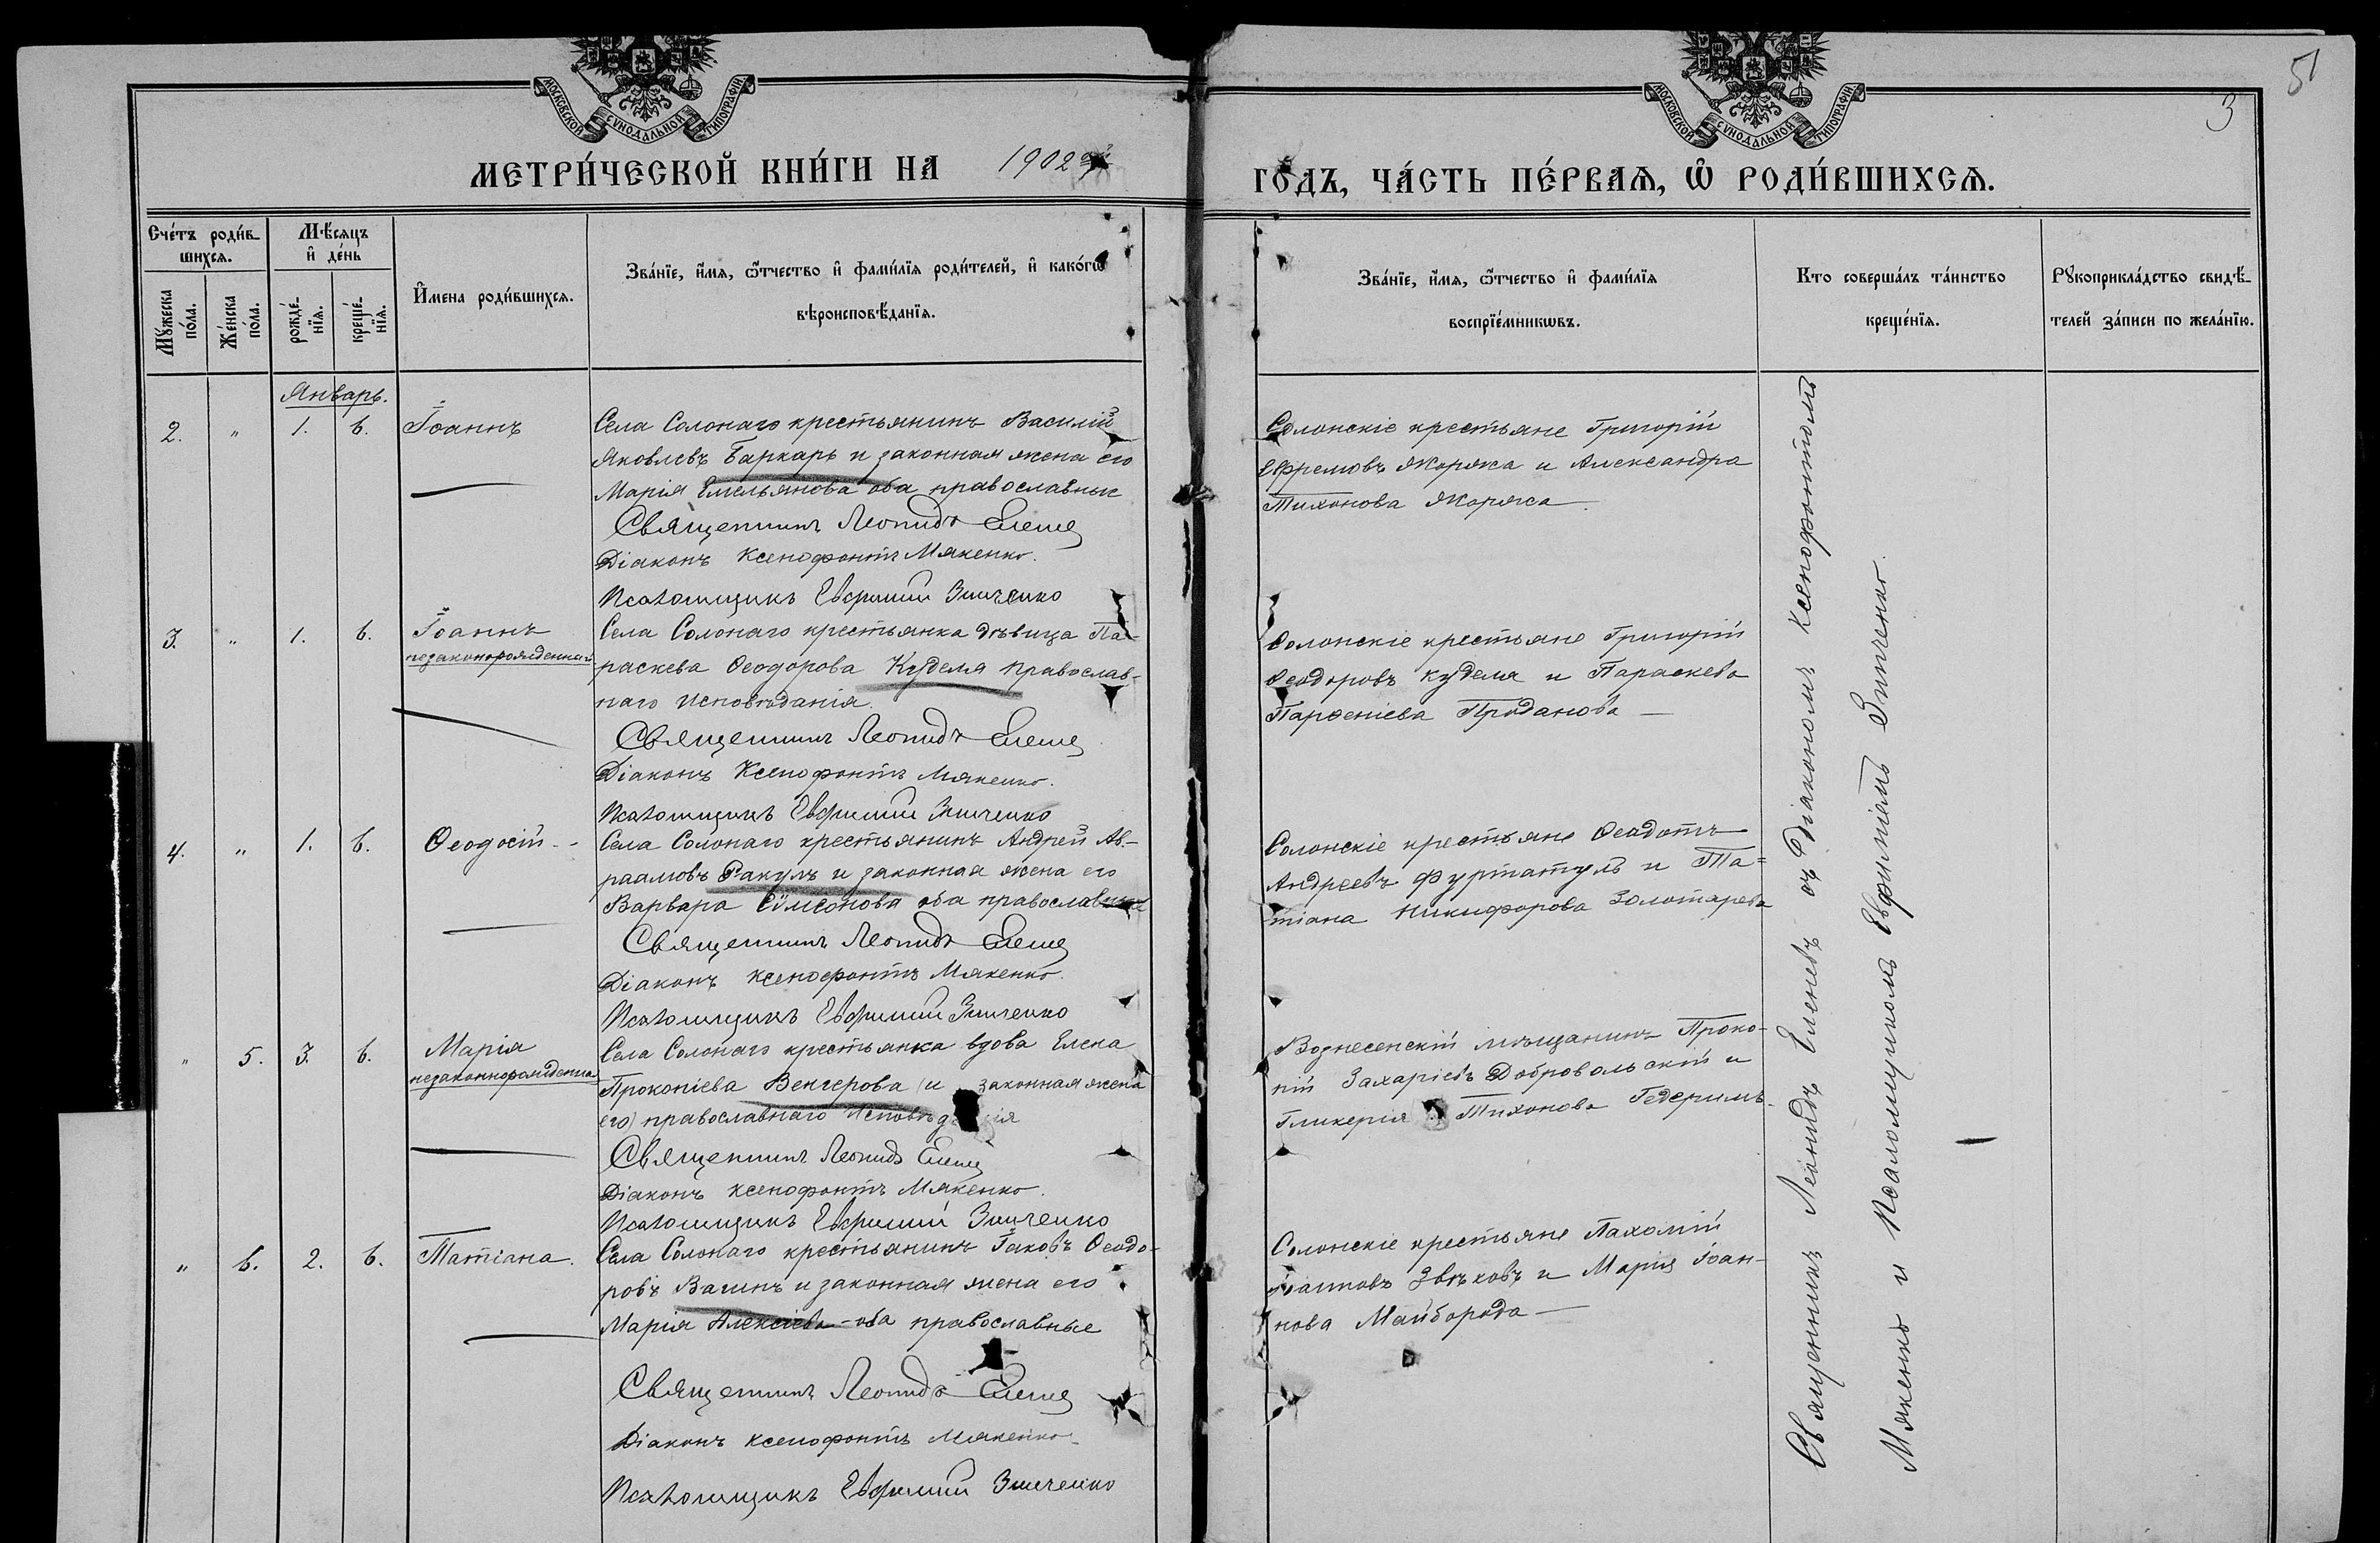 МОСКОВСКОЙ СѴНОДАЛЬНОЙ ТИПОГРАФІИ
МОСКОВСКОЙ СѴНОДАЛЬНОЙ ТИПОГРАФІИ
3
МЕТРИ́ЧЕСКОЙ КНИ́ГИ НА 1902
ГО́ДЪ, ЧА́СТЬ ПЕ́РВАѦ, Ѡ҆ РОДИ́ВШИХСѦ.
Сче́тъ роди́в-
шихсѧ.
Мꙋ́жеска
по́ла.
Же́нска
по́ла.
Мѣ́сѧцъ
и҆ де́нь
рожде́-
нїѧ.
креще́-
нїѧ.
И҆мена роди́вшихсѧ.
Зва́нїе, и҆́мѧ, ѻ҆́тчество и҆ фами́лїѧ роди́телей, и҆ како́гѡ
вѣроисповѣ́данїѧ.
Зва́нїе, и҆́мѧ, ѻ҆́тчество и҆ фами́лїѧ
воспрїе́мникѡвъ.
Кто соверша́лъ та́инство
креще́нїѧ.
Рꙋкоприкла́дство свидѣ́-
телей за́писи по жела́нїю.
Январь.
2. „ 1. 6. Іоаннъ
Села Солонаго крестьянинъ Василій
Яковлевъ Баркарь и законная жена его
Марія Емельянова оба православные
Священникъ Леонидъ
Діаконъ Ксенофонтъ Мякенко.
Псаломщикъ Евфимій Зинченко
Солонскіе крестьяне Григорій
Ефремовъ Жоржа и Александра
Тихонова Жоржа.
3. „ 1. 6. Іоаннъ
незаконорожденный
Села Солонаго крестьянка дѣвица Па-
раскева Ѳеодорова Куделя православ-
наго исповѣданія.
Священникъ Леонидъ
Діаконъ Ксенофонтъ Мякенко.
Псаломщикъ Евфимій Зинченко
Солонскіе крестьяне Григорій
Ѳеодоровъ Куделя и Параскева
Парѳеніева Проданова —
4. „ 1. 6. Ѳеодосій
Села Солонаго крестьянинъ Андрей Ав-
раамовъ Ракулъ и законная жена его
Варвара Сѵмеонова оба православные
Священникъ Леонидъ
Діаконъ Ксенофонтъ Мякенко.
Псаломщикъ Евфимій Зинченко
Солонскіе крестьяне Ѳеодотъ
Андреевъ Фуртатулъ и Та-
тіана Никифорова Золотарева
„ 5. 3. 6. Марія
незаконнорожденна
Села Солонаго крестьянка вдова Елена
Прокопіева Венгерова (и законная жена
его) православнаго исповѣданія
Священникъ Леонидъ
Діаконъ Ксенофонтъ Мякенко.
Псаломщикъ Евфимій Зинченко
Вознесенскій мѣщанинъ Проко-
пій Захаріевъ Добровольскій и
Гликерія Тихонова Гедеримъ
„ 6. 2. 6. Татіана.
Села Солонаго крестьянинъ Іаковъ Ѳеодо-
ровъ Вагинъ и законная жена его
Марія Алексіева оба православные
Священникъ Леонидъ
Діаконъ Ксенофонтъ Мякенко
Псаломщикъ Евфимій Зинченко
Солонскіе крестьяне Пахомій
Звѣковъ и Марія Іоан-
нова Майборода —
Священникъ Леонидъ Еленевъ съ Діакономъ Ксенофонтомъ
Мякенко и Псаломщикомъ Евфиміемъ Зинченко.